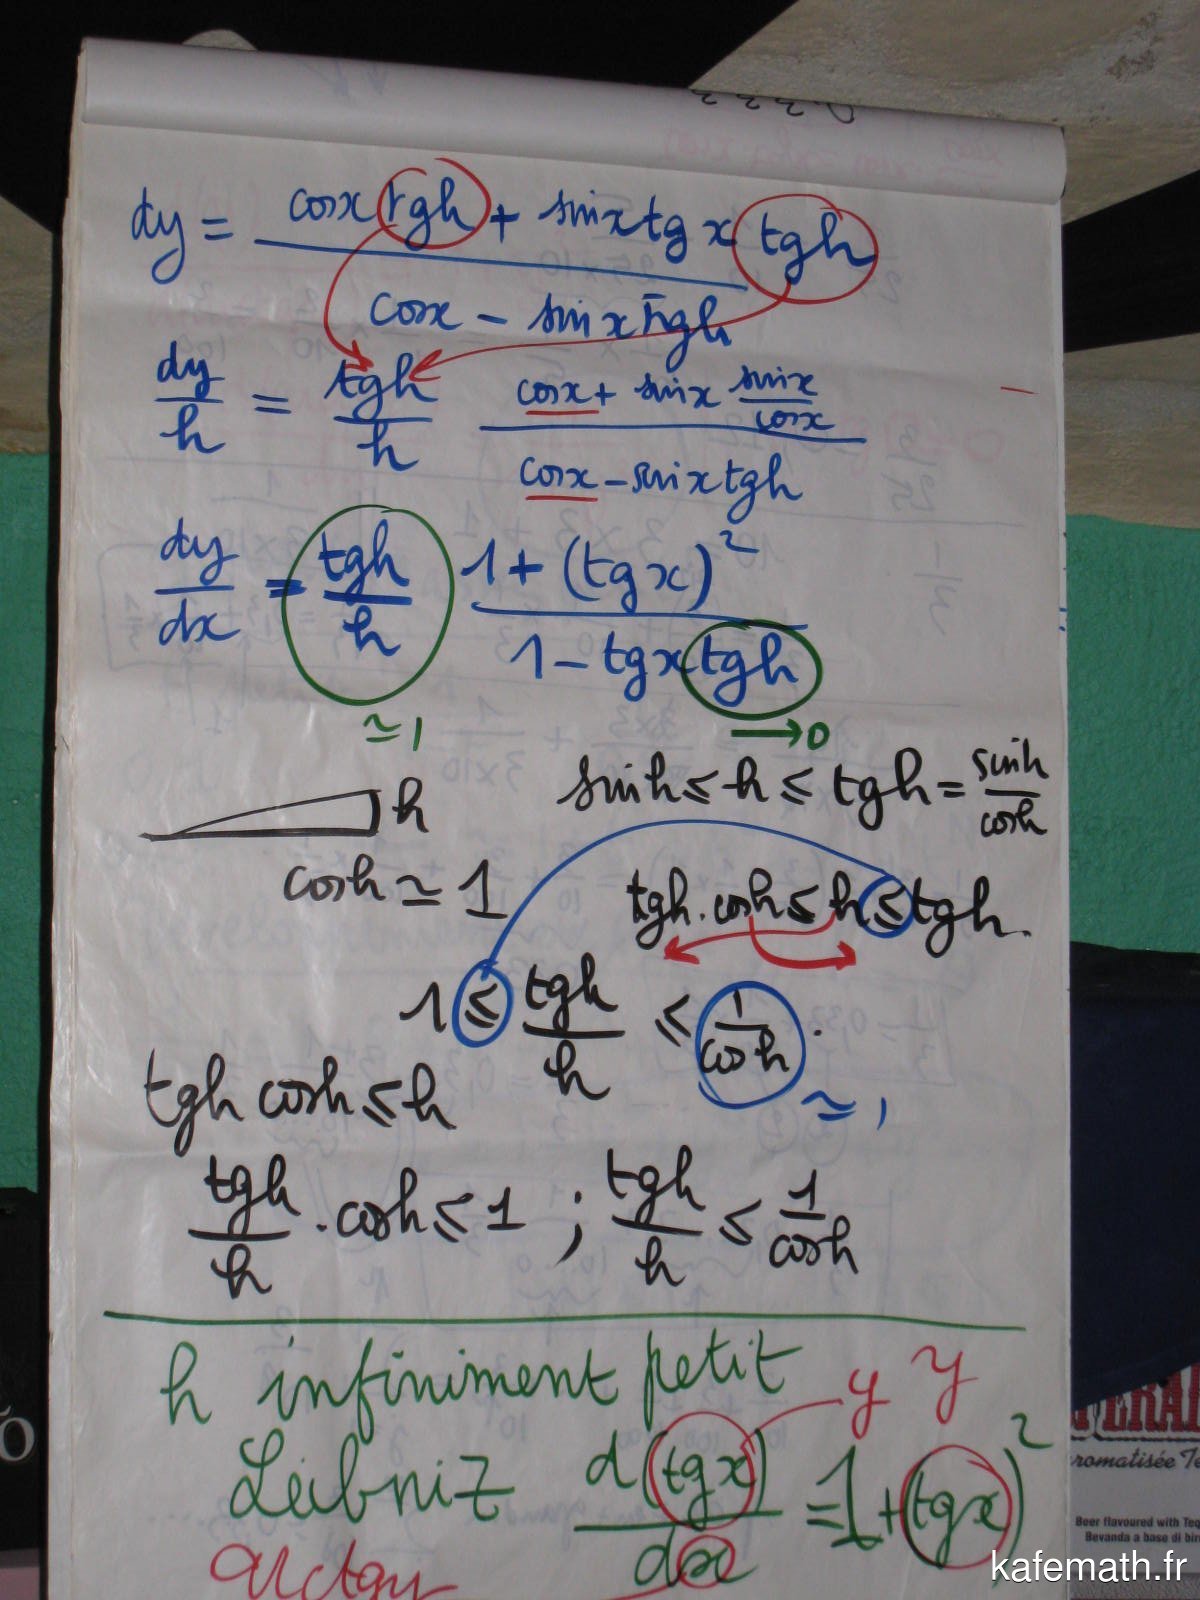 dy = (cosx tgh + sinx tgx tgh) / (cosx - sinx tgh)
dy/h = tgh/h (cosx + sinx sinx/cosx) / (cosx - sinx tgh)
dy/dx = tgh/h (1 + (tgx)²) / (1 - tgx tgh)
≃ 1
→ 0
sinh ≤ h ≤ tgh = sinh/cosh
h
cosh ≃ 1
tgh . cosh ≤ h ≤ tgh .
1 ≤ tgh/h ≤ 1/cosh .
≃ 1
tgh cosh ≤ h
tgh/h . cosh ≤ 1 ; tgh/h ≤ 1/cosh
h infiniment petit
y y
Leibniz d(tgx)/dx = 1 + (tgx)²
arctgy
Beer flavoured with Teq
Bevanda a base di birr
romatisée Te
kafemath.fr